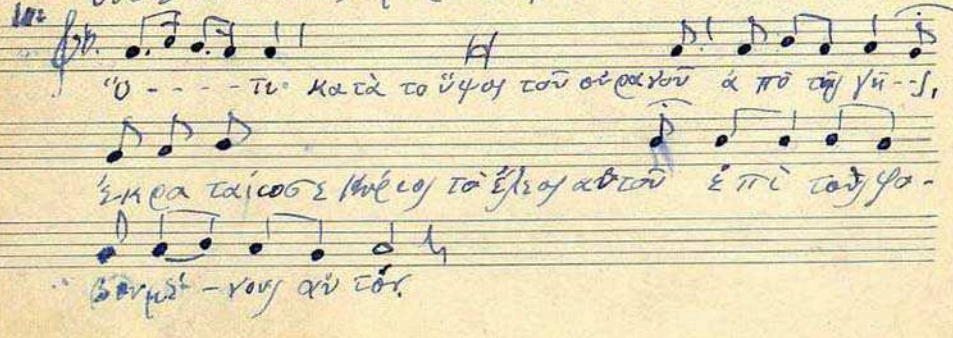 Ὅ - - - - τι κατὰ το ὕψος τοῦ οὐρανοῦ ἀ πὸ τῆς γῆ - - ς,
ἐκρα ταίωσε Κύριος τὸ ἔλεος αὐτοῦ ἐ πὶ τοὺς φο -
βουμέ - νους αὐ τόν.